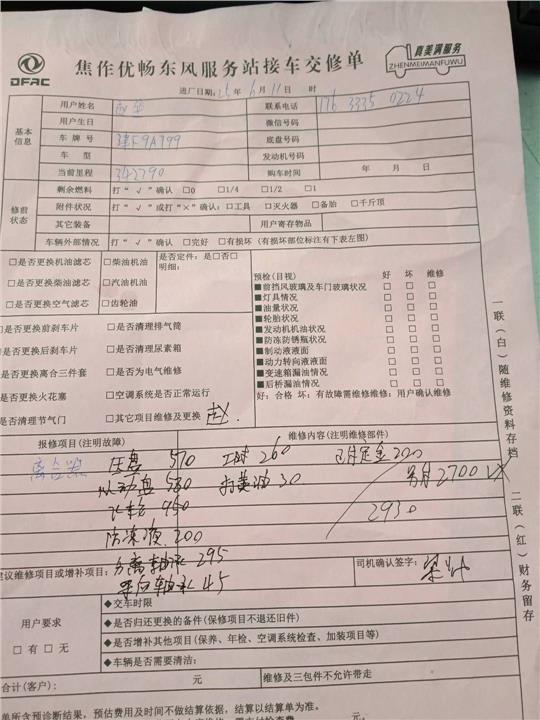 DFAC
焦作优畅东风服务站接车交修单
真美满服务
ZHENMEIMANFUWU
进厂日期：25年6月11日 时
基本信息
用户姓名 联系电话 176 3335 0224
用户生日 微信号码
车牌号 F9A799 底盘号码
车型 发动机号码
当前里程 342790 购车时间 年 月 日
修前状态
剩余燃料 打“√”确认 □0 □1/4 □1/2 □1
附件状况 打“√”或打“×”确认：□工具 □灭火器 □备胎 □千斤顶
其它装备 用户寄存物品
车辆外部情况 打“√”确认 □完好 □有损坏（有损坏部位标注有下表左图）
□是否更换机油滤芯 □柴油机油 是否定件：是□否□
明细：
□是否更换柴油滤芯 □汽油机油
□是否更换空气滤芯 □齿轮油
预检（目视） 好 坏 维修
■前挡风玻璃及车门玻璃状况
■灯具情况
■油量状况
■轮胎状况
■发动机机油状况
■防冻防锈瓶状况
■制动液液面
■动力转向液液面
■变速箱漏油情况
■后桥漏油情况
好：合格 坏：有故障需维修维修：用户确认维修
□是否更换前刹车片 □是否清理排气筒
□是否更换后刹车片 □是否清理尿素箱
□是否更换离合三件套 □是否为电气维修
□是否更换火花塞 □空调系统是否正常运行
□是否清理节气门 □其它项目维修及更换 赵
报修项目（注明故障） 维修内容（注明维修部件）
离合器 压盘 570 工时 260 已付定金 200
从动盘 580 打黄油 30 另付 2700
飞车轮 950
2930
防冻液 200
建议维修项目或增补项目： 分离轴承 295
导向轴承 45
司机确认签字：
用户要求
□有 □无
◆交车时限
◆是否归还更换的备件（保修项目不退还旧件）
◆是否增补其他项目（保养、年检、空调系统检查、加装项目等）
◆车辆是否需要清洁：
合计（客户）： 元 维修及三包件不允许带走
单所含预诊断结果，预估费用及时间不做结算依据，结算以结算单为准。
一联（白）随维修资料存档
二联（红）财务留存